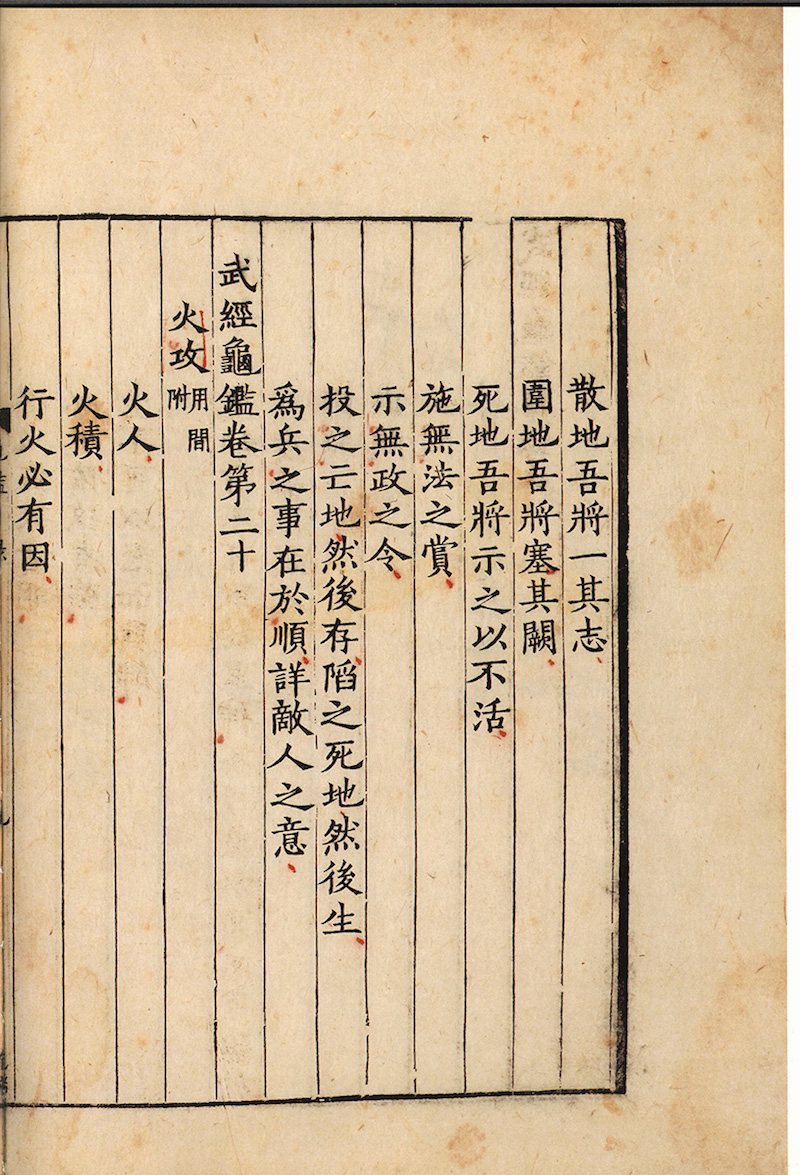 散地吾將一其志
圍地吾將塞其闕
死地吾將示之以不活
施無法之賞
示無政之令
投之亡地然後存陷之死地然後生
爲兵之事在於順詳敵人之意
武經龜鑑卷第二十
火攻用間附
火人
火積
行火必有因